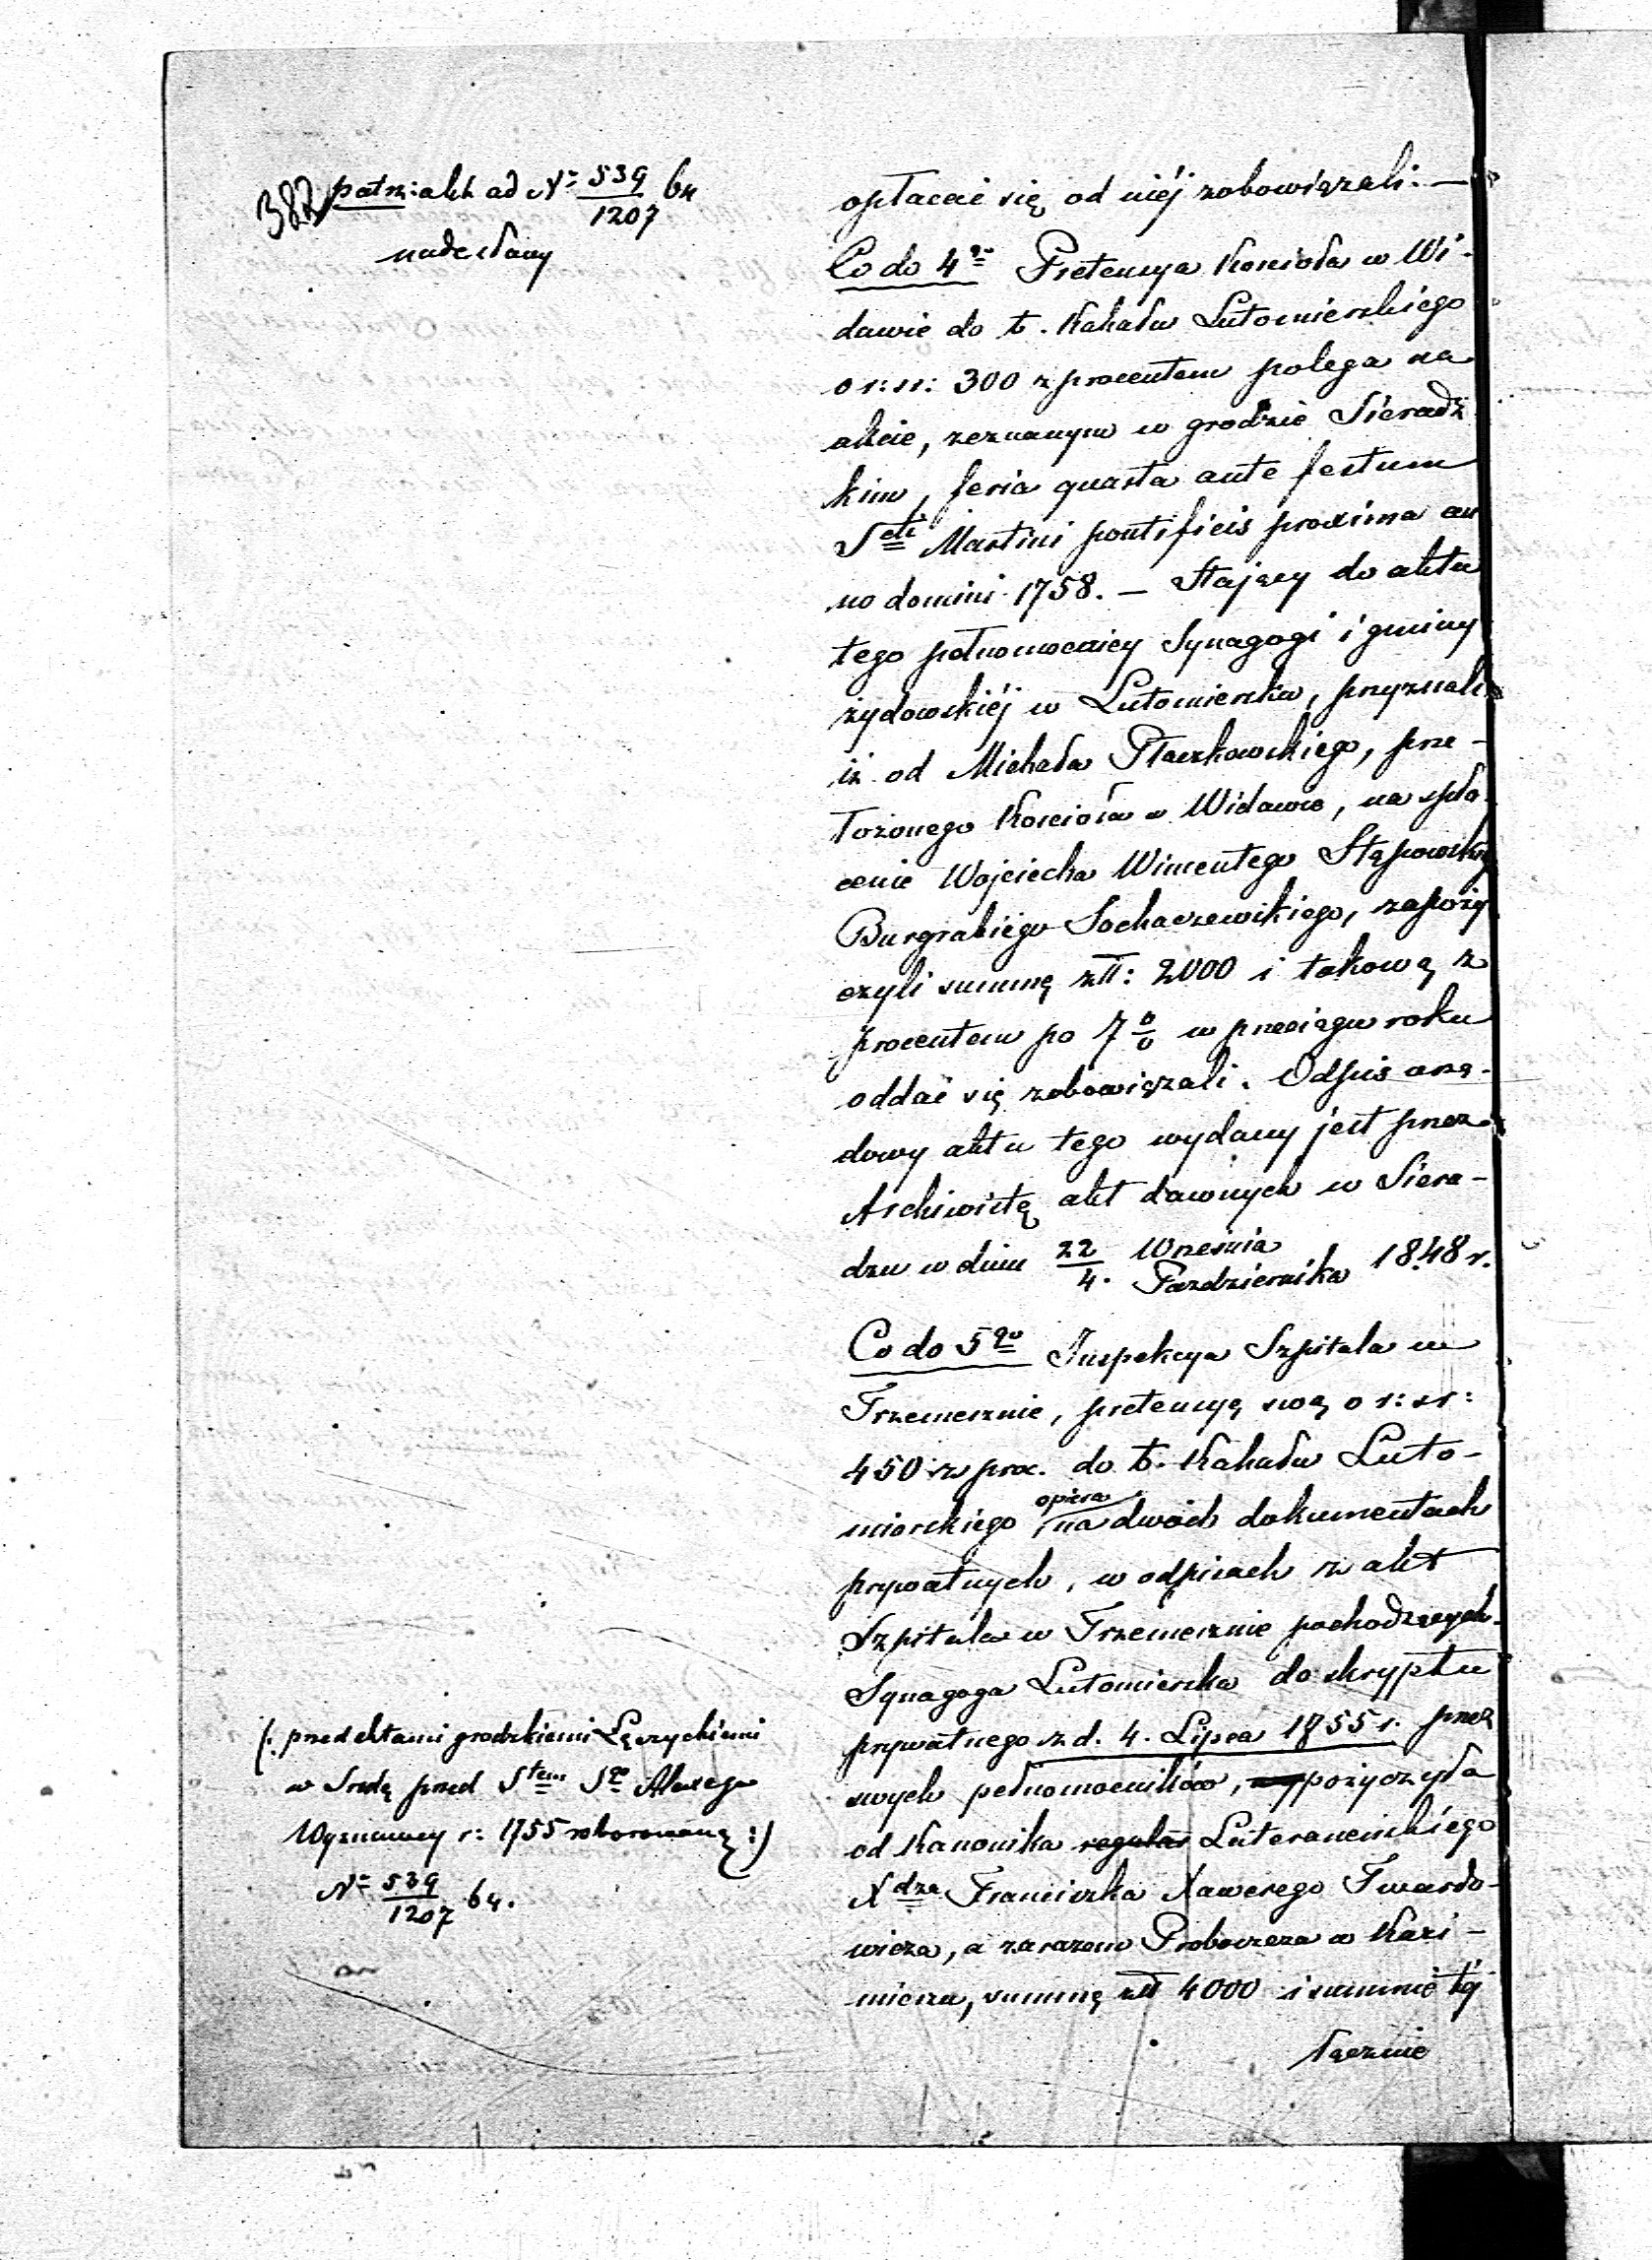 382 patrz: akt ad No 539/1207 64
nadesłany
opłacać się od niéj zobowiązali: —
Co do 4go Pretensya Kościoła w Wi-
dawie do b. Kahału Lutomierskiego
o r: sr: 300 z procentem polega na
akcie, zeznanym w grodzie Sieradz
kim, feria quarta ante festum
Scti Martini pontificis proxima an
no domini 1758. — Stający do aktu
tego pełnomocnicy Synagogi i gminy
żydowskiéj w Lutomiersku, przyznali
iż od Michała Płaczkowskiego, prze-
łożonego Kościoła w Widawie, na spła-
cenie Wojciecha Wincentego Stępowski
Burgrabiego Sochaczewskiego, zapoży
czyli summę złł: 2000 i takową z
procentem po 7 % w przeciągu roku
oddać się zobowiązali. Odpis urzę-
dowy aktu tego wydany jest przez
Archiwistę akt dawnych w Siera-
dzu w dniu 22 Września / 4. Października 1848 r.
Co do 5go Inspekcya Szpitala w
Trzemesznie, pretensyę swą o r: sr:
450 z proc. do b. Kahału Luto-
mierskiego opiera na dwóch dokumentach
prywatnych, w odpisach z akt
Szpitala w Trzemesznie pochodzących.
Synagoga Lutomierska do skryptu
prywatnego z d. 4. Lipca 1755 r. przez
swych pełnomocników, pożyczyła
od Kanonika regular Lateraneńskiego
Xdza Franciszka Xawerego Twardo-
wicza, a zarazem Proboszcza w Kazi-
mierzu, summę złł 4000 i summie téj
łącznie
(: przed aktami grodzkiemi Łęczyckiemi
w Srodę przed Stem Sgo Alexego
Wyznawcy r: 1755 roborowaną :)
No 539/1207 64.